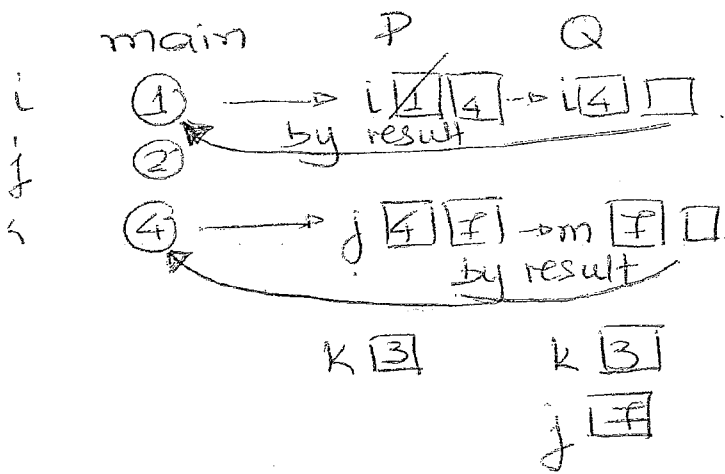 main P Q
i 1 i 1 4 i 4
by result
j 2
4 j 4 7 m 7
by result
K 3 k 3
j 7